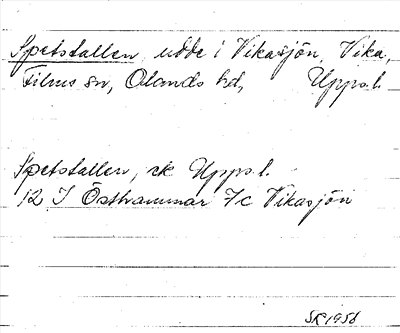 Spetstallen, udde i Vikasjön, Vika,
Films sn, Olands hd, Upps.l.
Spetstallen, ek Upps.l.
12 I Östhammar 7c Vikasjön
SR 1956